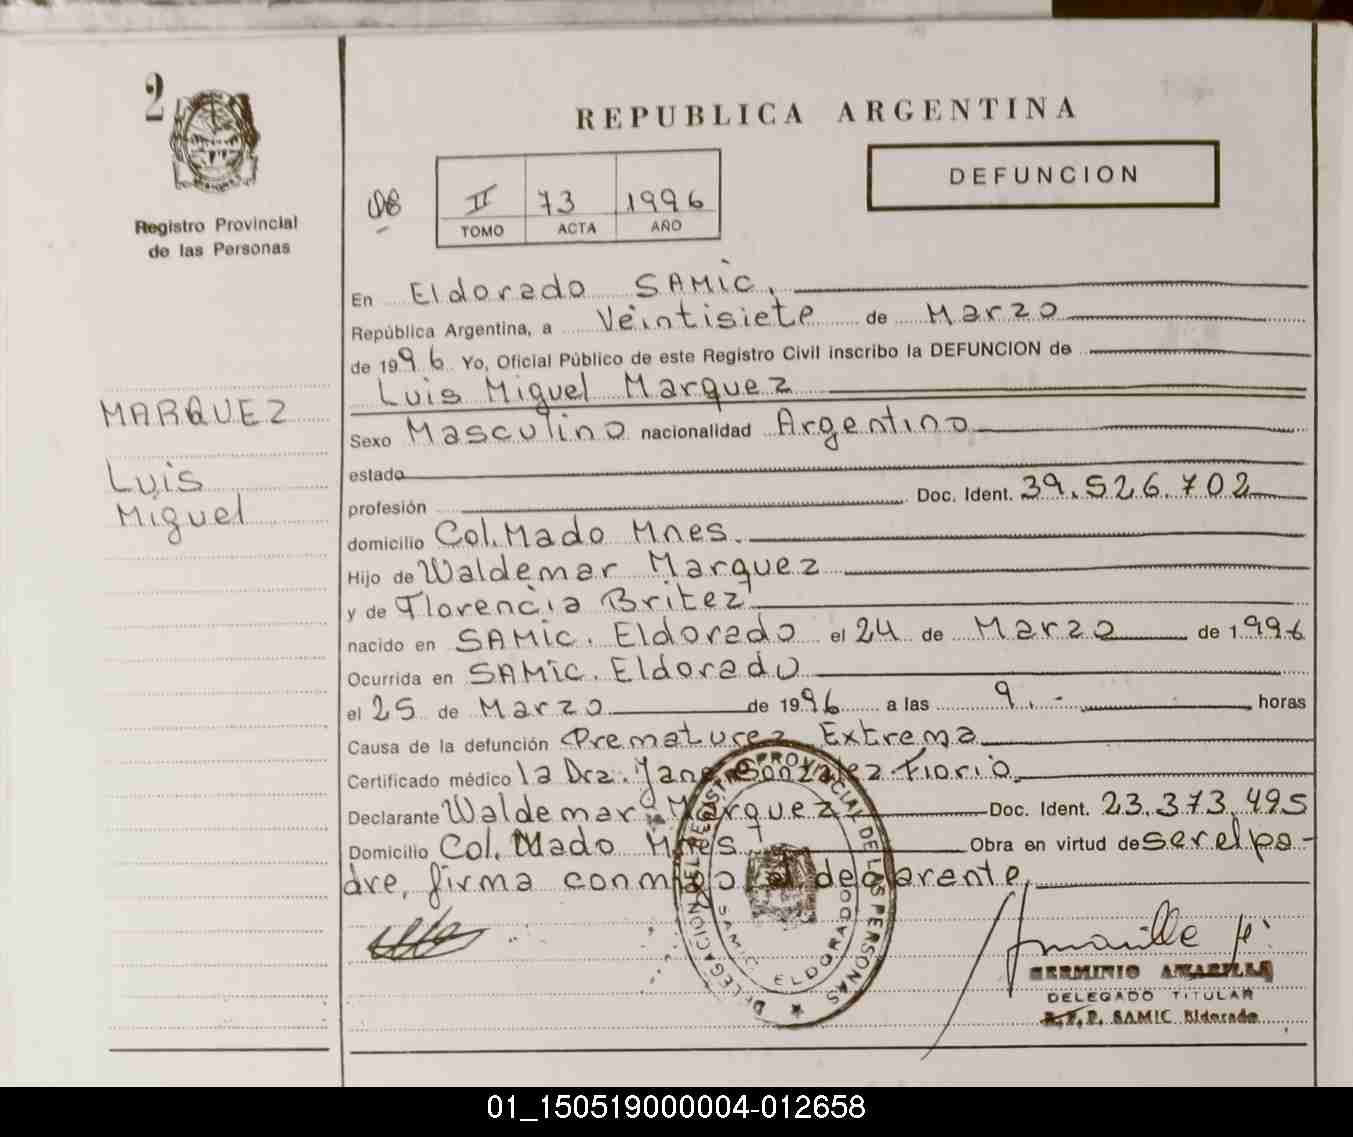 2
Registro Provincial
de las Personas
MARQUEZ
Luis
Miguel
REPUBLICA ARGENTINA
DEFUNCION
II 73 1996
TOMO ACTA AÑO
En Eldorado SAMIC,
República Argentina, a Veintisiete de Marzo
de 1996 Yo, Oficial Público de este Registro Civil inscribo la DEFUNCION de
Luis Miguel Marquez
Sexo Masculino nacionalidad Argentino
estado
profesión Doc. Ident. 39.526.702
domicilio Col. Mado Mnes.
Hijo de Waldemar Marquez
y de Florencia Britez
nacido en SAMIC. Eldorado el 24 de Marzo de 1.996
Ocurrida en SAMIC. Eldorado
el 25 de Marzo de 1996 a las 9.- horas
Causa de la defunción Prematurez Extrema
Certificado médico la Dra. Jane Gonzalez Fiorio
Declarante Waldemar Marquez Doc. Ident. 23.373.495
Domicilio Col. Mado Mnes Obra en virtud de ser el pa-
dre, firma conmigo el declarente,
DELEGACION DEL REGISTRO PROVINCIAL DE LAS PERSONAS
SAMIC ELDORADO
HERMINIO AMARILLA
DELEGADO TITULAR
R.P.P. SAMIC Eldorado
01_150519000004-012658